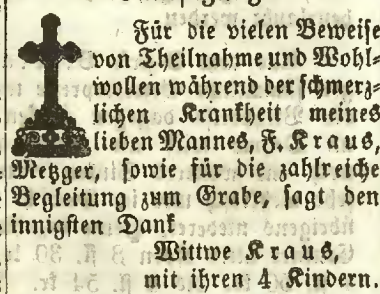 Für die vielen Beweise
von Theilnahme und Wohl-
wollen während der schmerz-
lichen Krankheit meines
lieben Mannes, F. Kraus,
Metzger, sowie für die zahlreiche
Begleitung zum Grabe, sagt den
innigsten Dank
Wittwe Kraus,
mit ihren 4 Kindern.